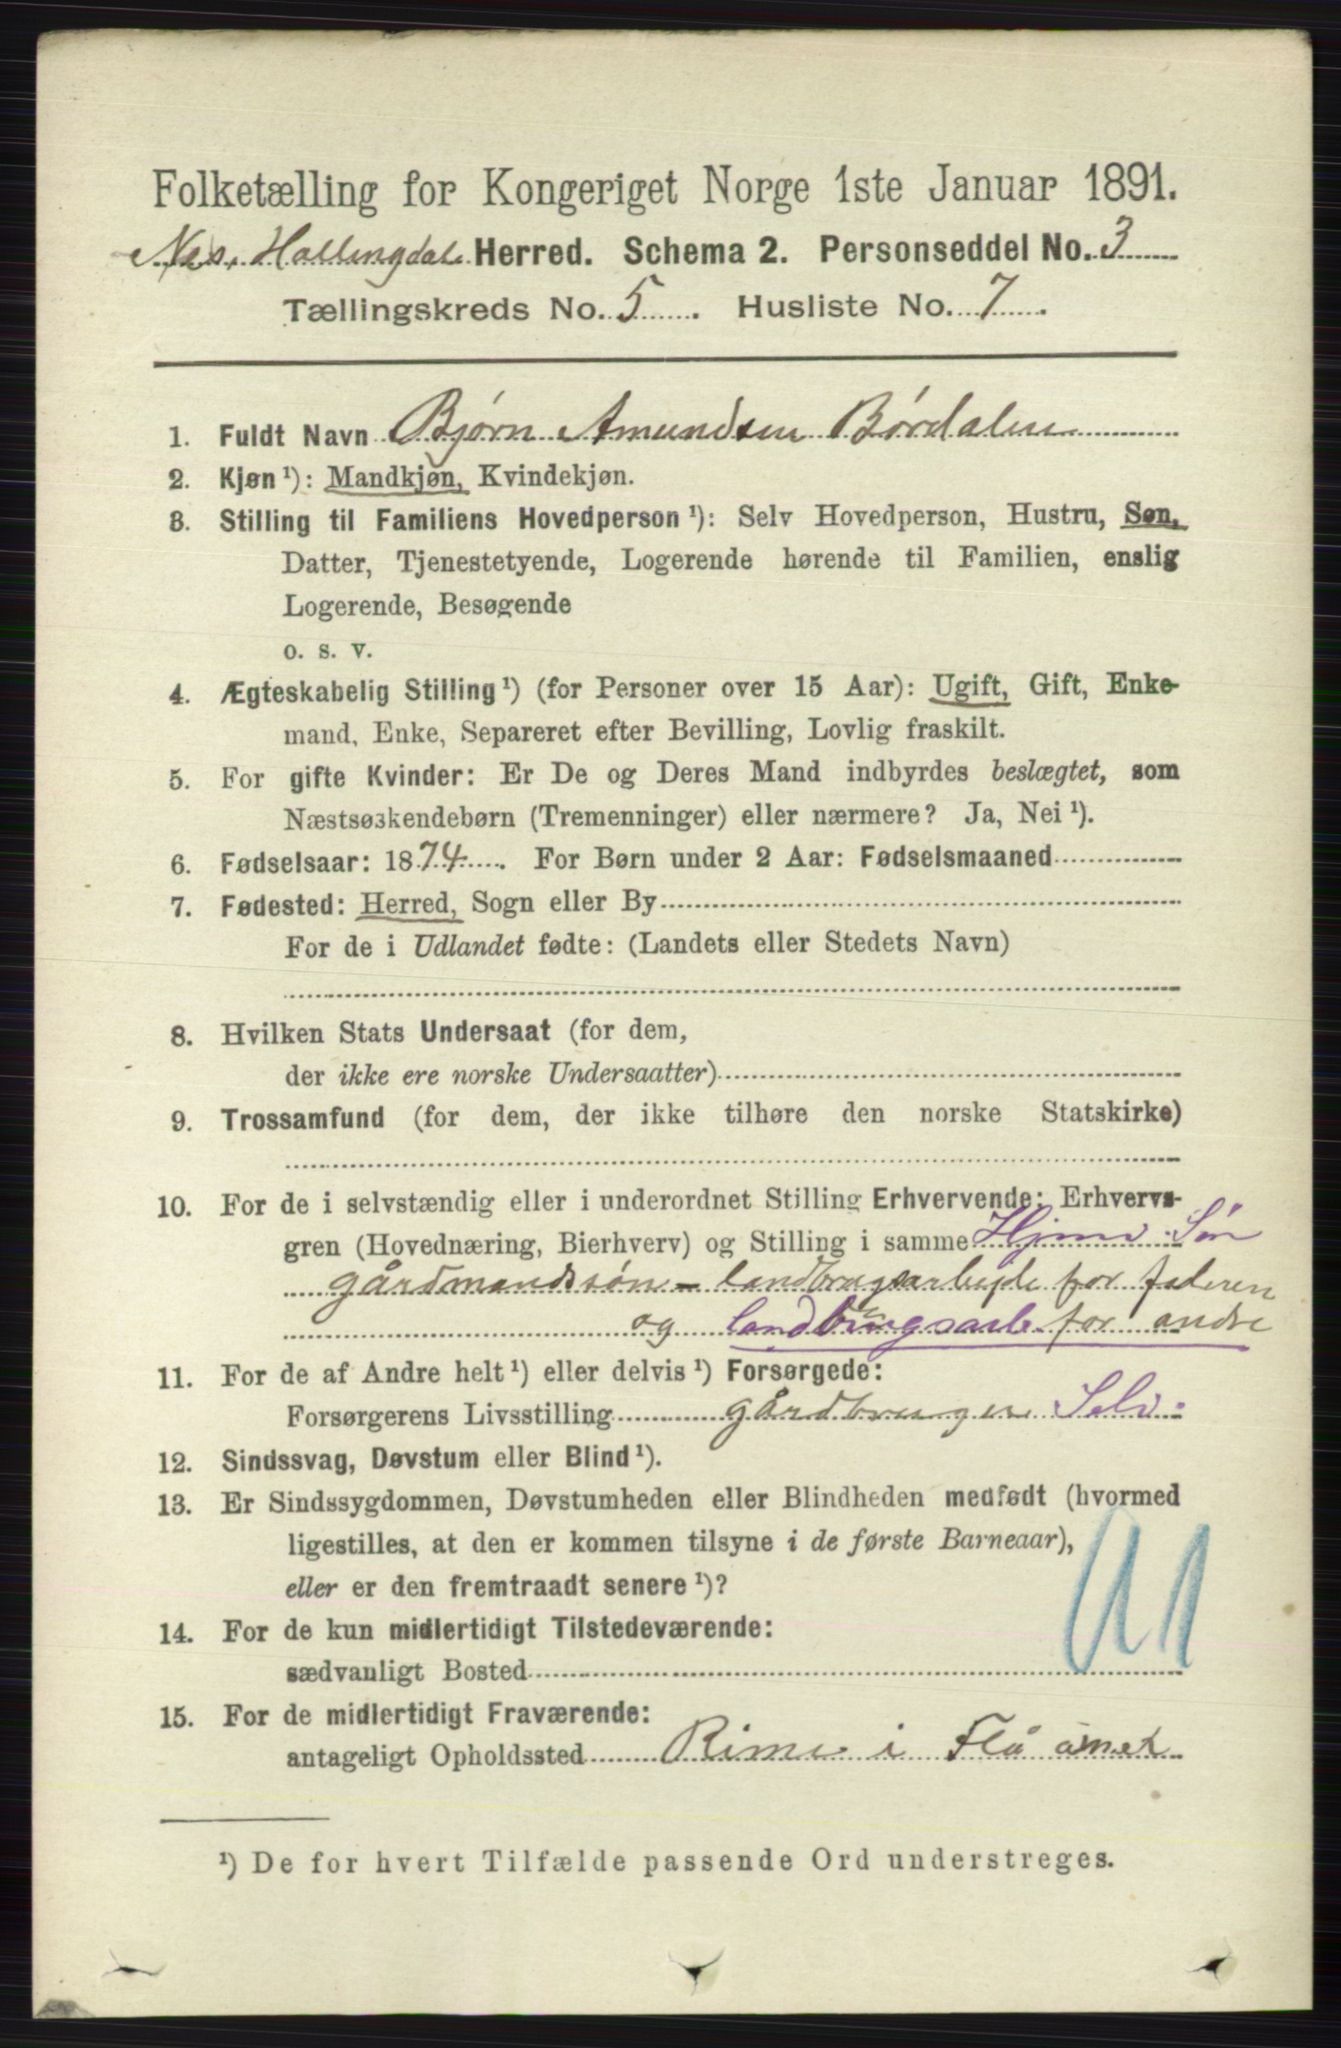 Folketælling for Kongeriget Norge 1ste Januar 1891.
Nes, Hallingdal Herred. Schema 2. Personseddel No. 3
Tællingskreds No. 5. Husliste No. 7.
1. Fuldt Navn Bjørn Amundsen Børdalen
2. Kjøn ¹): Mandkjøn, Kvindekjøn.
3. Stilling til Familiens Hovedperson ¹): Selv Hovedperson, Hustru, Søn,
Datter, Tjenestetyende, Logerende hørende til Familien, enslig
Logerende, Besøgende
o. s. v.
4. Ægteskabelig Stilling ¹) (for Personer over 15 Aar): Ugift, Gift, Enke-
mand, Enke, Separeret efter Bevilling, Lovlig fraskilt.
5. For gifte Kvinder: Er De og Deres Mand indbyrdes beslægtet, som
Næstsøskendebørn (Tremenninger) eller nærmere? Ja, Nei ¹).
6. Fødselsaar: 1874. For Børn under 2 Aar: Fødselsmaaned
7. Fødested: Herred, Sogn eller By
For de i Udlandet fødte: (Landets eller Stedets Navn)
8. Hvilken Stats Undersaat (for dem,
der ikke ere norske Undersaatter)
9. Trossamfund (for dem, der ikke tilhøre den norske Statskirke)
10. For de i selvstændig eller i underordnet Stilling Erhvervende: Erhvervs-
gren (Hovednæring, Bierhverv) og Stilling i samme Hjmv. Søn
gårdmandssøn - landbrugsarbejde for faderen
og landbrugsarb. for andre
11. For de af Andre helt ¹) eller delvis ¹) Forsørgede:
Forsørgerens Livsstilling gårdbruger Selv.
12. Sindssvag, Døvstum eller Blind ¹).
13. Er Sindssygdommen, Døvstumheden eller Blindheden medfødt (hvormed
ligestilles, at den er kommen tilsyne i de første Barneaar),
eller er den fremtraadt senere ¹)?
14. For de kun midlertidigt Tilstedeværende:
sædvanligt Bosted
15. For de midlertidigt Fraværende:
antageligt Opholdssted Rime i Flå
¹) De for hvert Tilfælde passende Ord understreges.